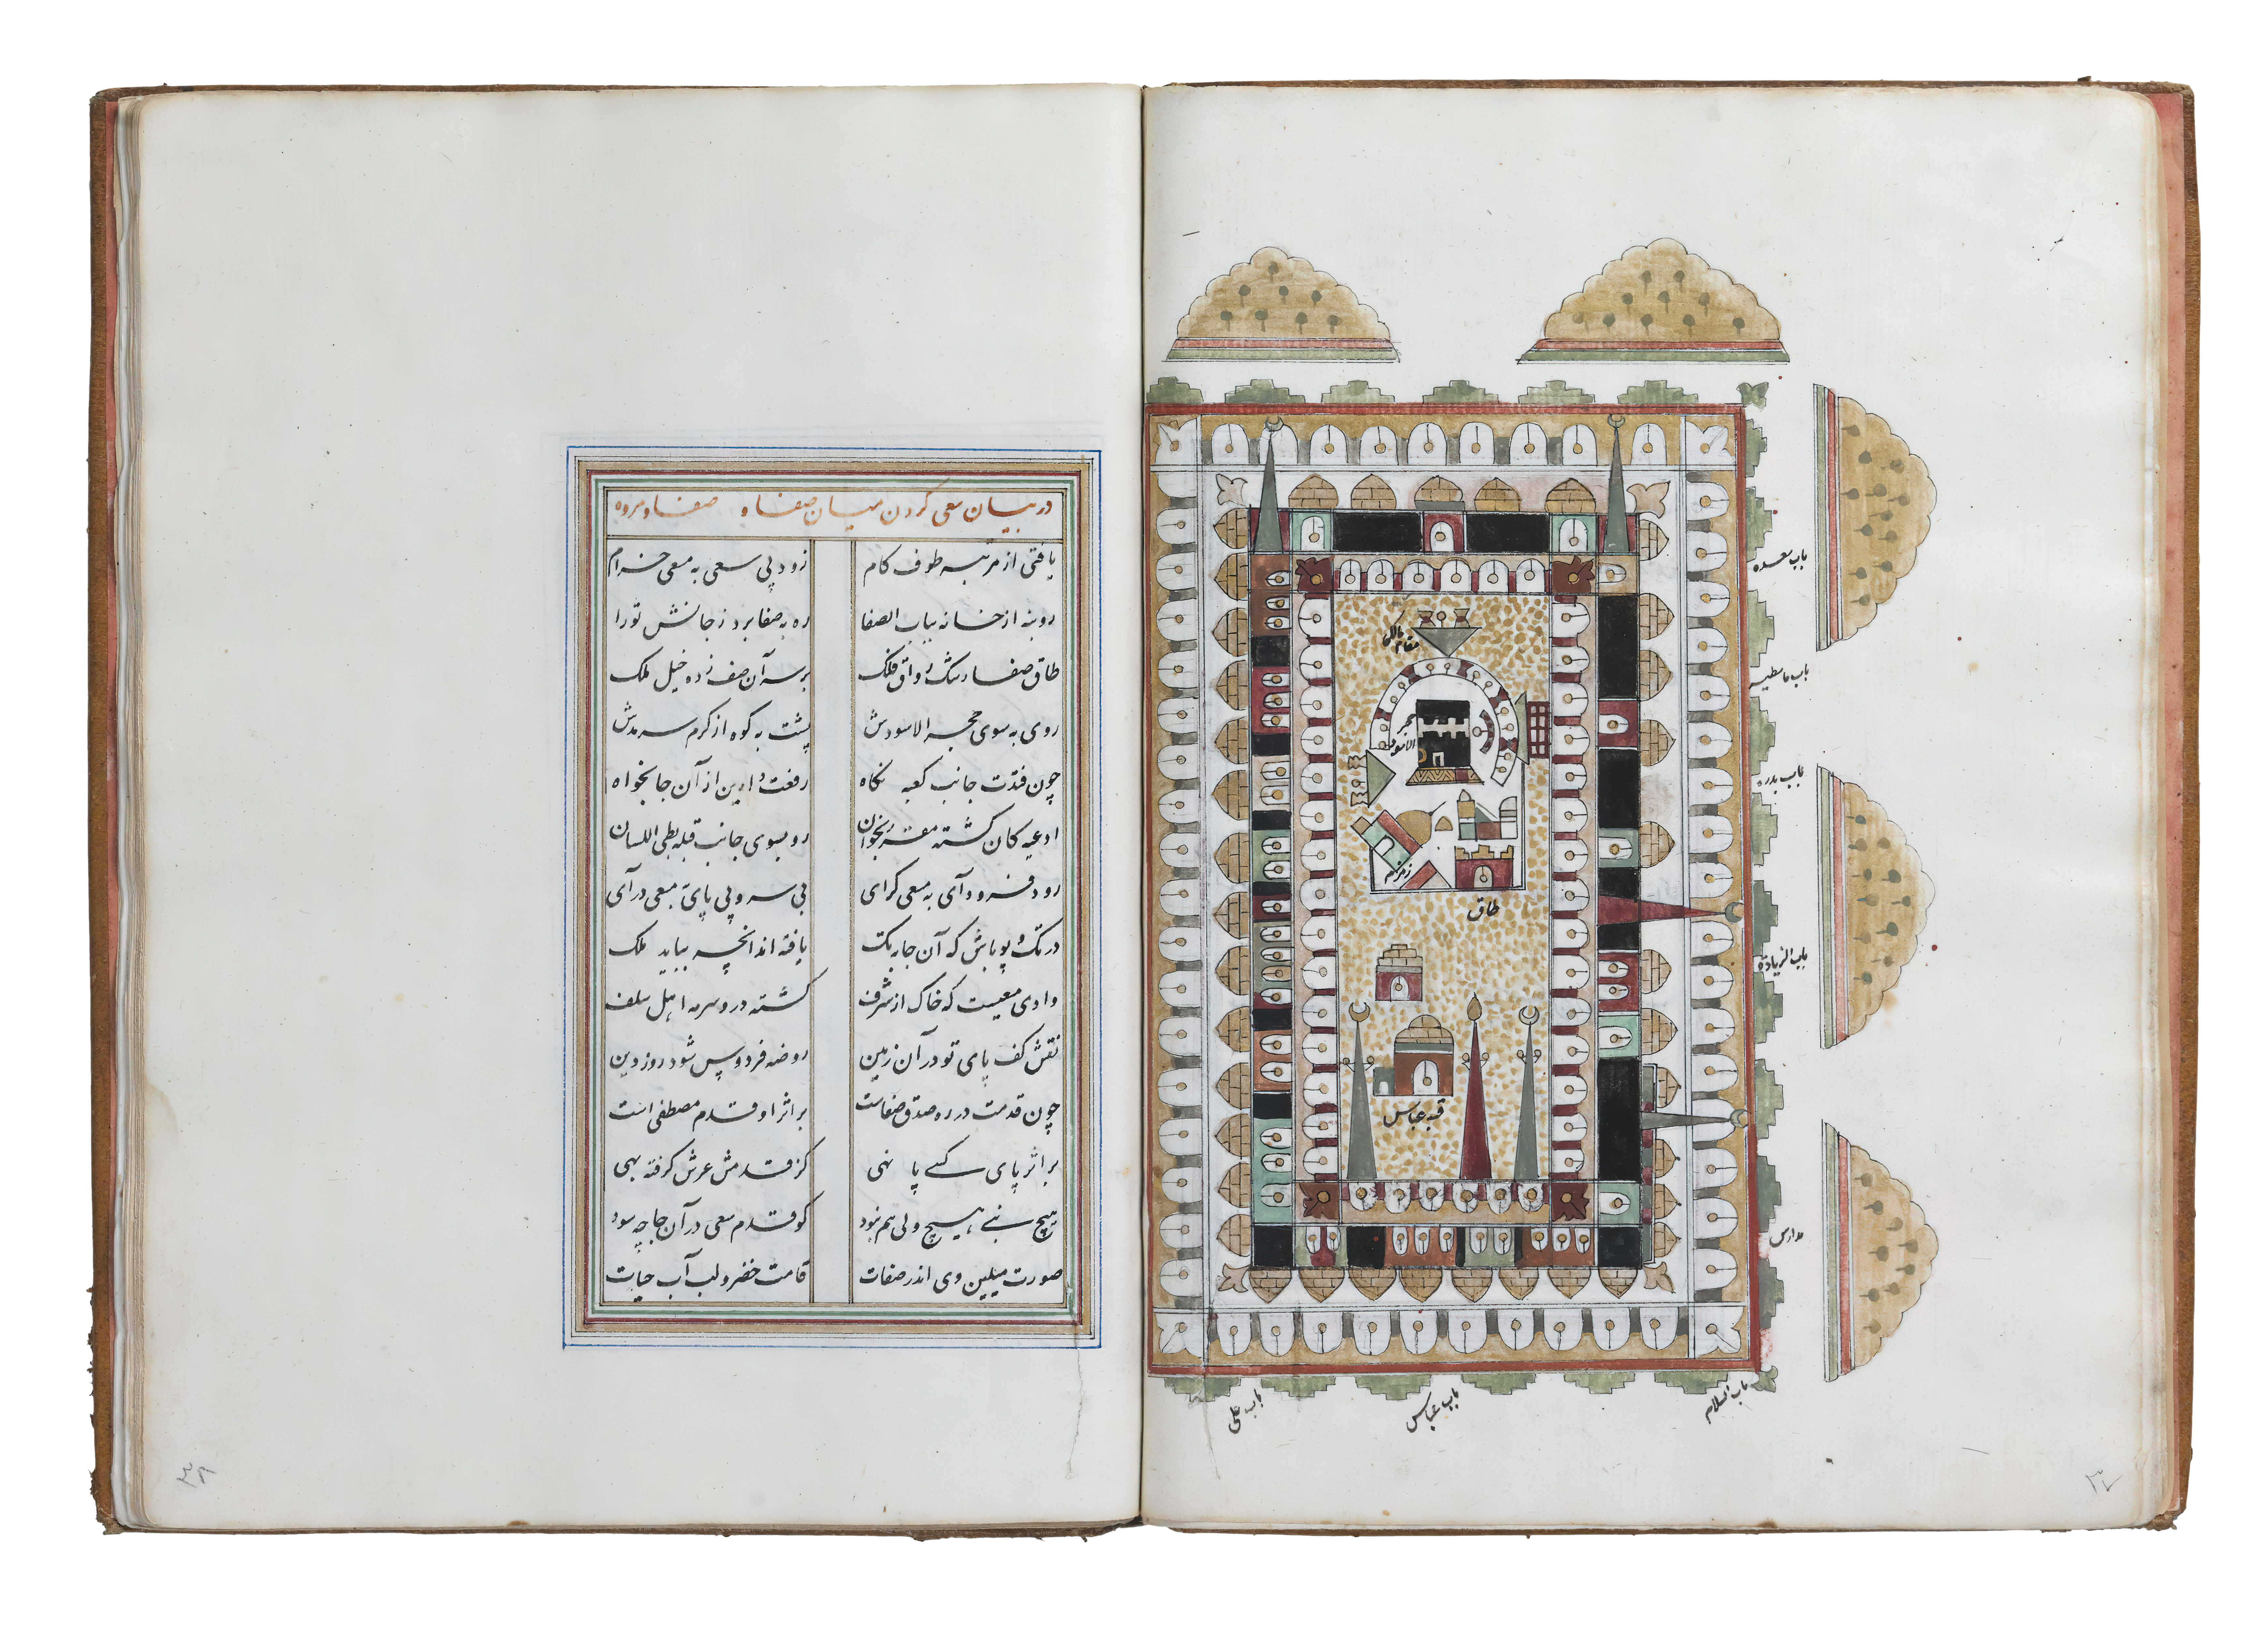 باب سعده
باب باسطیه
باب بدره
باب الزیاده
مدارس
باب السلام
باب عباس
باب علی
مقام مالکی
حجر الاسود
زمزم
طاق
قبه عباس
٣٧
در بیان سعی کردن میان صفا و صفا و مروه
یافتی از مرتبه طوف کام زود پی سعی به مسعی خرام
رو بنه از خانه بباب الصفا ره به صفا برد ز جانش تو را
طاق صفا رشک رواق فلک بر سر آن صف زده خیل ملک
روی به سوی حجر الاسودش پشت به کوه از کرم سرمدش
چون فتدت جانب کعبه نگاه رفعت دارین از آن جا بخواه
ادعیه کان گشته مقرر بخوان رو بسوی جانب قبله بطی اللسان
رود فرود آی به مسعی گرای بی سر و بی پای به مسعی در آی
در تک و پو باش که آن جا به تک یافته اند آنچه بباید ملک
وادی مسعیست که خاک از شرف گشته درو سرمه اهل سلف
نقش کف پای تو در آن زمین روضه فردوس شود روز دین
چون قدمت در ره صدق و صفاست بر اثر او قدم مصطفی است
بر اثر پای کسی پا نهی کز قدمش عرش گرفته بهی
هیچ نبی هیچ ولی هم نبود کو قدم سعی در آن جا چه سود
صورت میلین وی اندر صفات قامت خضر و لب آب حیات
٣٨